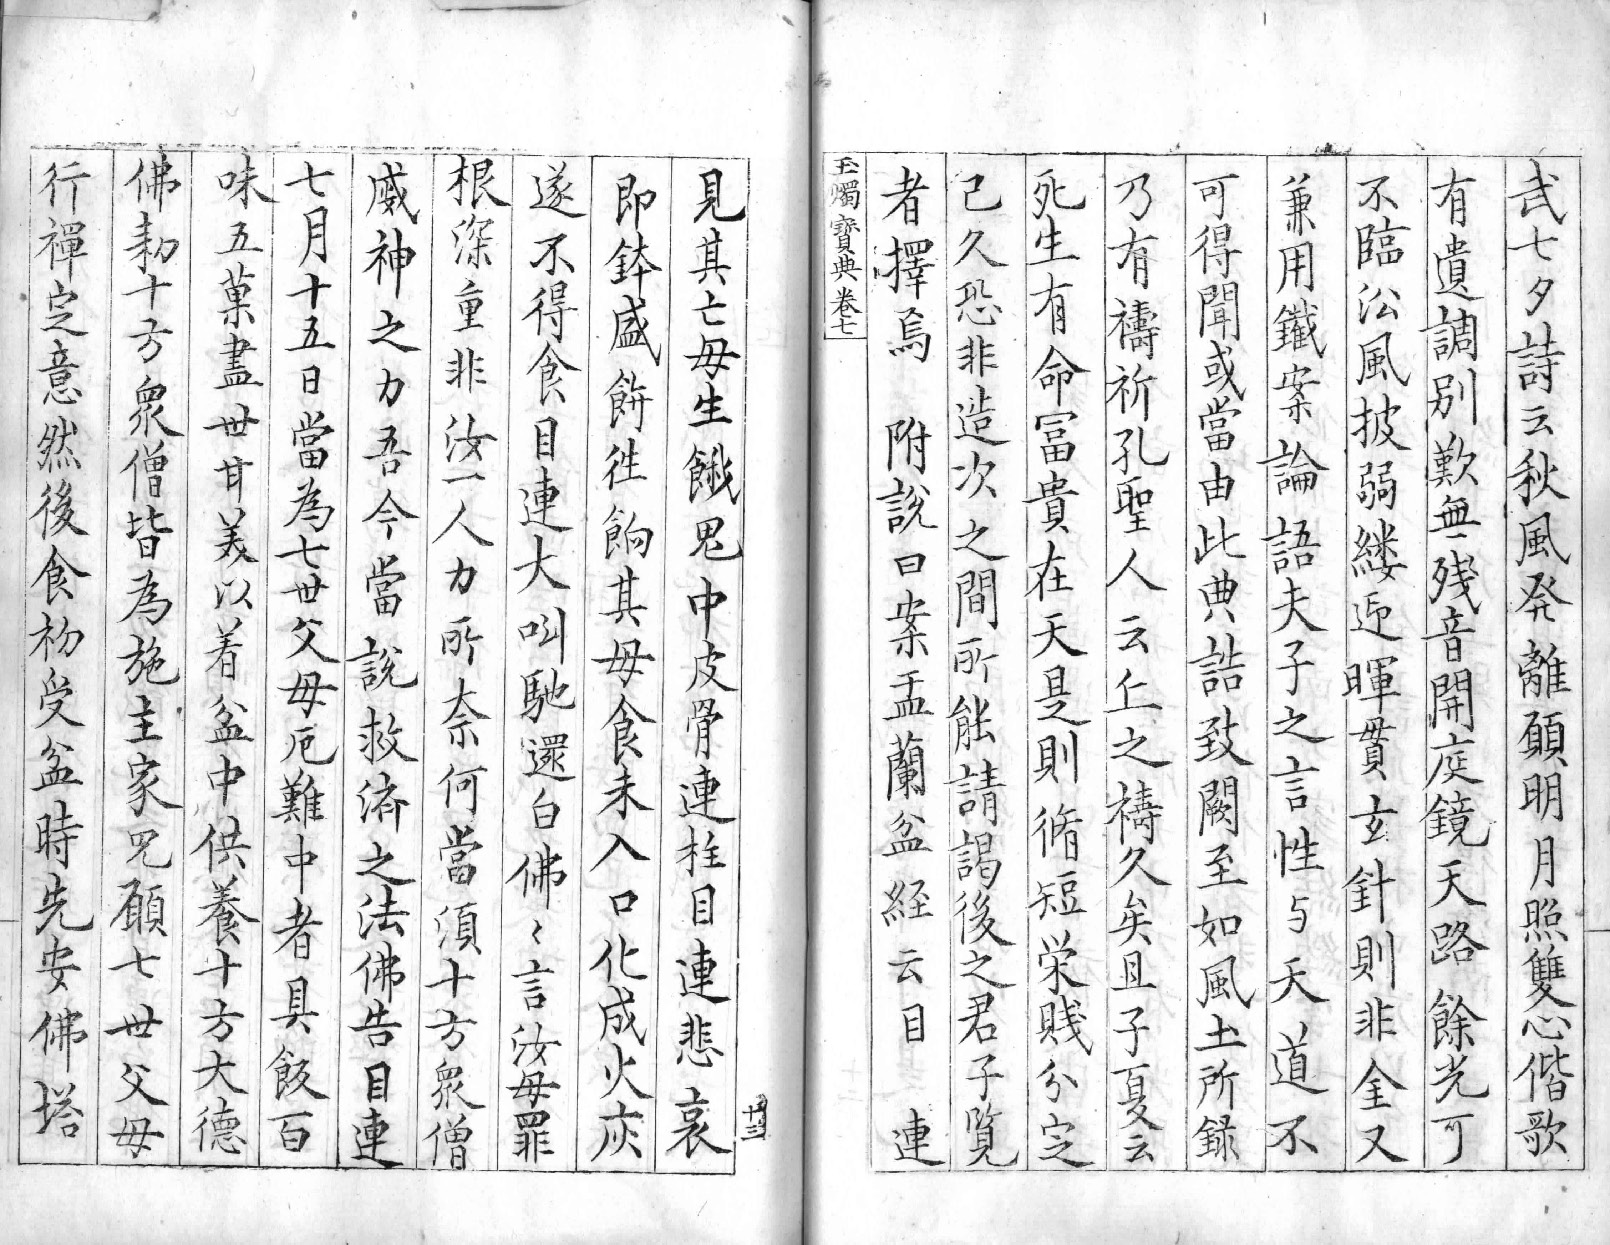 武七夕詩云秋風発離願明月照雙心偕歌
有遺調別歎無残音開庭鏡天路餘光可
不臨沿風披弱縷迎暉貫玄針則非金又
兼用鐵案論語夫子之言性与天道不
可得聞或當由此典誥致闕至如風土所録
乃有禱祈孔聖人云丘之禱久矣且子夏云
死生有命冨貴在天是則脩短栄賤分定
已久恐非造次之間所能請謁後之君子覧
者擇焉 附說曰案盂蘭盆経云目連
玉燭寶典卷七
見其亡母生餓鬼中皮骨連柱目連悲哀
即鉢盛餅徃餉其母食未入口化成火灰
遂不得食目連大叫馳還白佛〻言汝母罪
根深重非汝一人力所奈何當須十方衆僧
威神之力吾今當說救済之法佛告目連
七月十五日當為七世父母厄難中者具飯百
味五菓盡世甘美以着盆中供養十方大德
佛勑十方衆僧皆為施主家咒願七世父母
行禪定意然後食初受盆時先安佛塔
十三